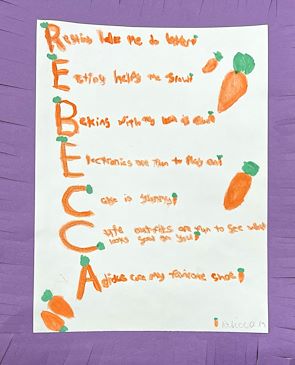 Reading helps me do better!
Eating helps me grow!
Baking with my mom is fun!
Electronics are fun to play on!
Cake is yummy!
Cute outfits are fun to see what
looks good on you!
Adidas are my favorite shoe!
Rebecca